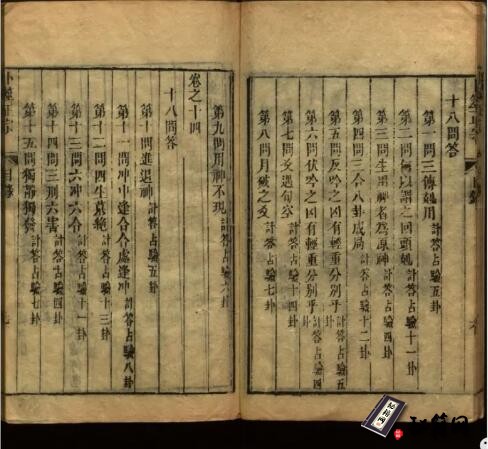 十八問答
第一問三傳尅用 計答占驗五卦
第二問何以謂之回頭尅 計答占驗十一卦
第三問生用神者為原神 計答占驗卦
第四問三合八卦成局 計答占驗十二卦
第五問反吟之凶有輕重分别乎 計答占驗五卦
第六問伏吟之凶有輕重分别乎 計答占驗四卦
第七問爻遇旬空 計答占驗六卦
第八問月破之爻 計答占驗七卦
第九問用神不現 計答占驗六卦
卷之十四
十八問答
第十問進退神 計答占驗五卦
第十一問冲中逢合合處逢冲 計答占驗八卦
第十二問四生墓絶 計答占驗十三卦
第十三問六冲六合 計答占驗十一卦
第十四問三刑六害 計答占驗四卦
第十五問獨静獨發 計答占驗七卦
目錄